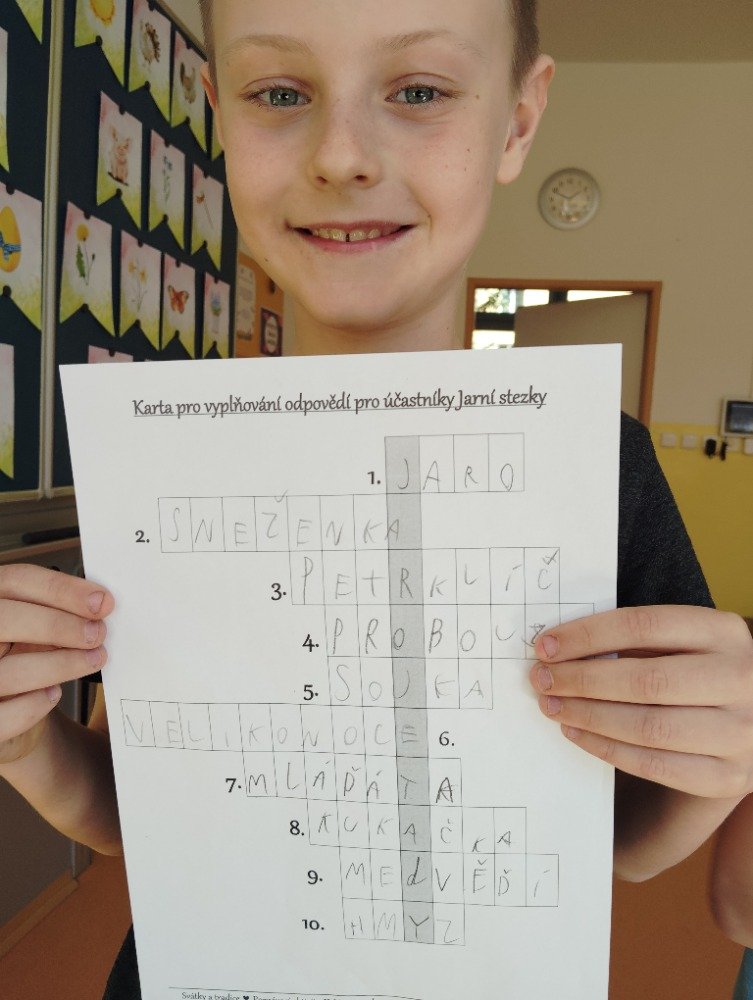 Karta pro vyplňování odpovědí pro účastníky Jarní stezky
1. JARO
2. SNEŽENKA
3. PETRKLÍČ
4. PROBOU
5. SOJKA
VELIKONOCE 6.
7. MLÁĎÁTA
8. KUKAČKA
9. MEdVĚĎÍ
10. HMYZ
Svátky a tradice ♥